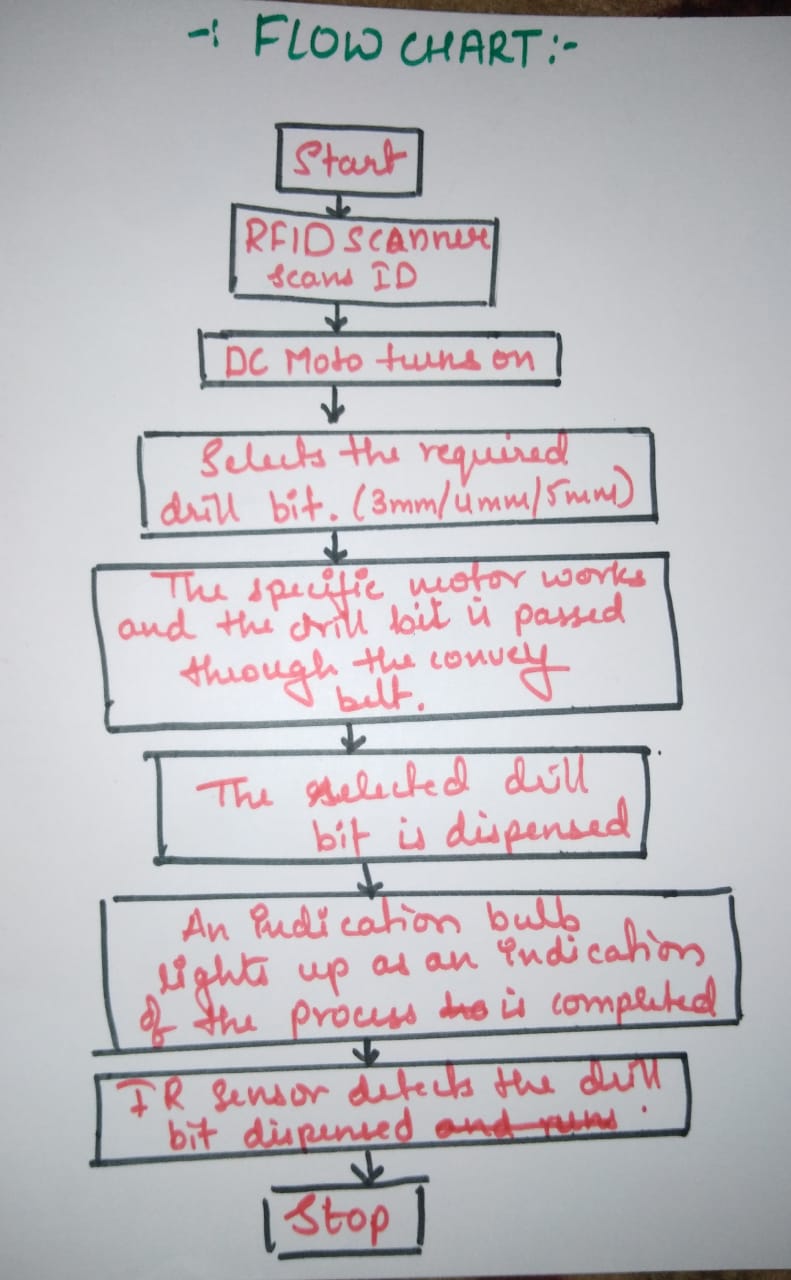 -: FLOW CHART:-
Start
RFID SCANNER
scans ID
DC Moto turns on
Selects the required
drill bit. (3mm/4mm/5mm)
The specific motor works
and the drill bit is passed
through the convey
belt.
The selected drill
bit is dispensed
An indication bulb
lights up as an indication
of the process is completed
IR sensor detects the drill
bit dispensed and runs.
Stop